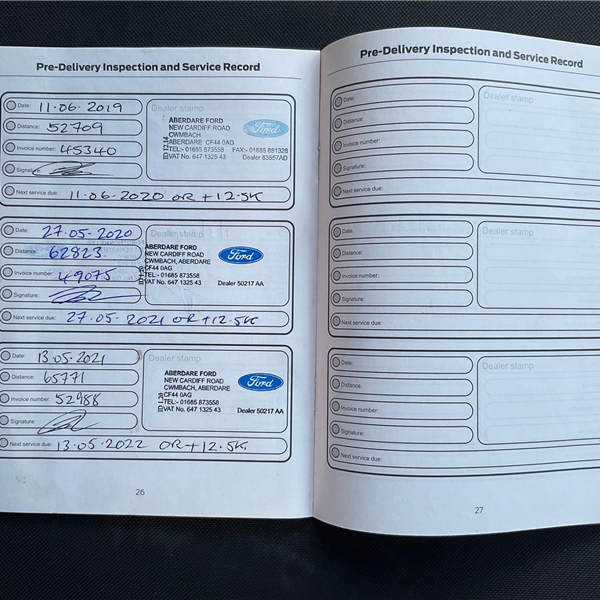 Pre-Delivery Inspection and Service Record
Date: 11·06·2019
Distance: 52709
Invoice number: 45340
Signature:
Next service due: 11·06·2020 OR +12·5K
Dealer stamp
ABERDARE FORD
NEW CARDIFF ROAD
CWMBACH
ABERDARE CF44 0AG
TEL:- 01685 873558 FAX:- 01685 881328
VAT No. 647 1325 43 Dealer 83557AD
Ford
Date: 27·05·2020
Distance: 62823
Invoice number: 49075
Signature:
Next service due: 27·05·2021 OR +12·5K
ABERDARE FORD
NEW CARDIFF ROAD
CWMBACH, ABERDARE
CF44 0AG
TEL:- 01685 873558
VAT No. 647 1325 43 Dealer 50217 AA
Ford
Date: 13·05·2021
Distance: 65771
Invoice number: 52988
Signature:
Next service due: 13·05·2022 OR +12·5K
Dealer stamp
ABERDARE FORD
NEW CARDIFF ROAD
CWMBACH, ABERDARE
CF44 0AG
TEL:- 01685 873558
VAT No. 647 1325 43 Dealer 50217 AA
Ford
26
Pre-Delivery Inspection and Service Record
Date:
Distance:
Invoice number:
Signature:
Next service due:
Dealer stamp
Date:
Distance:
Invoice number:
Signature:
Next service due:
Dealer stamp
Date:
Distance:
Invoice number:
Signature:
Next service due:
Dealer stamp
27